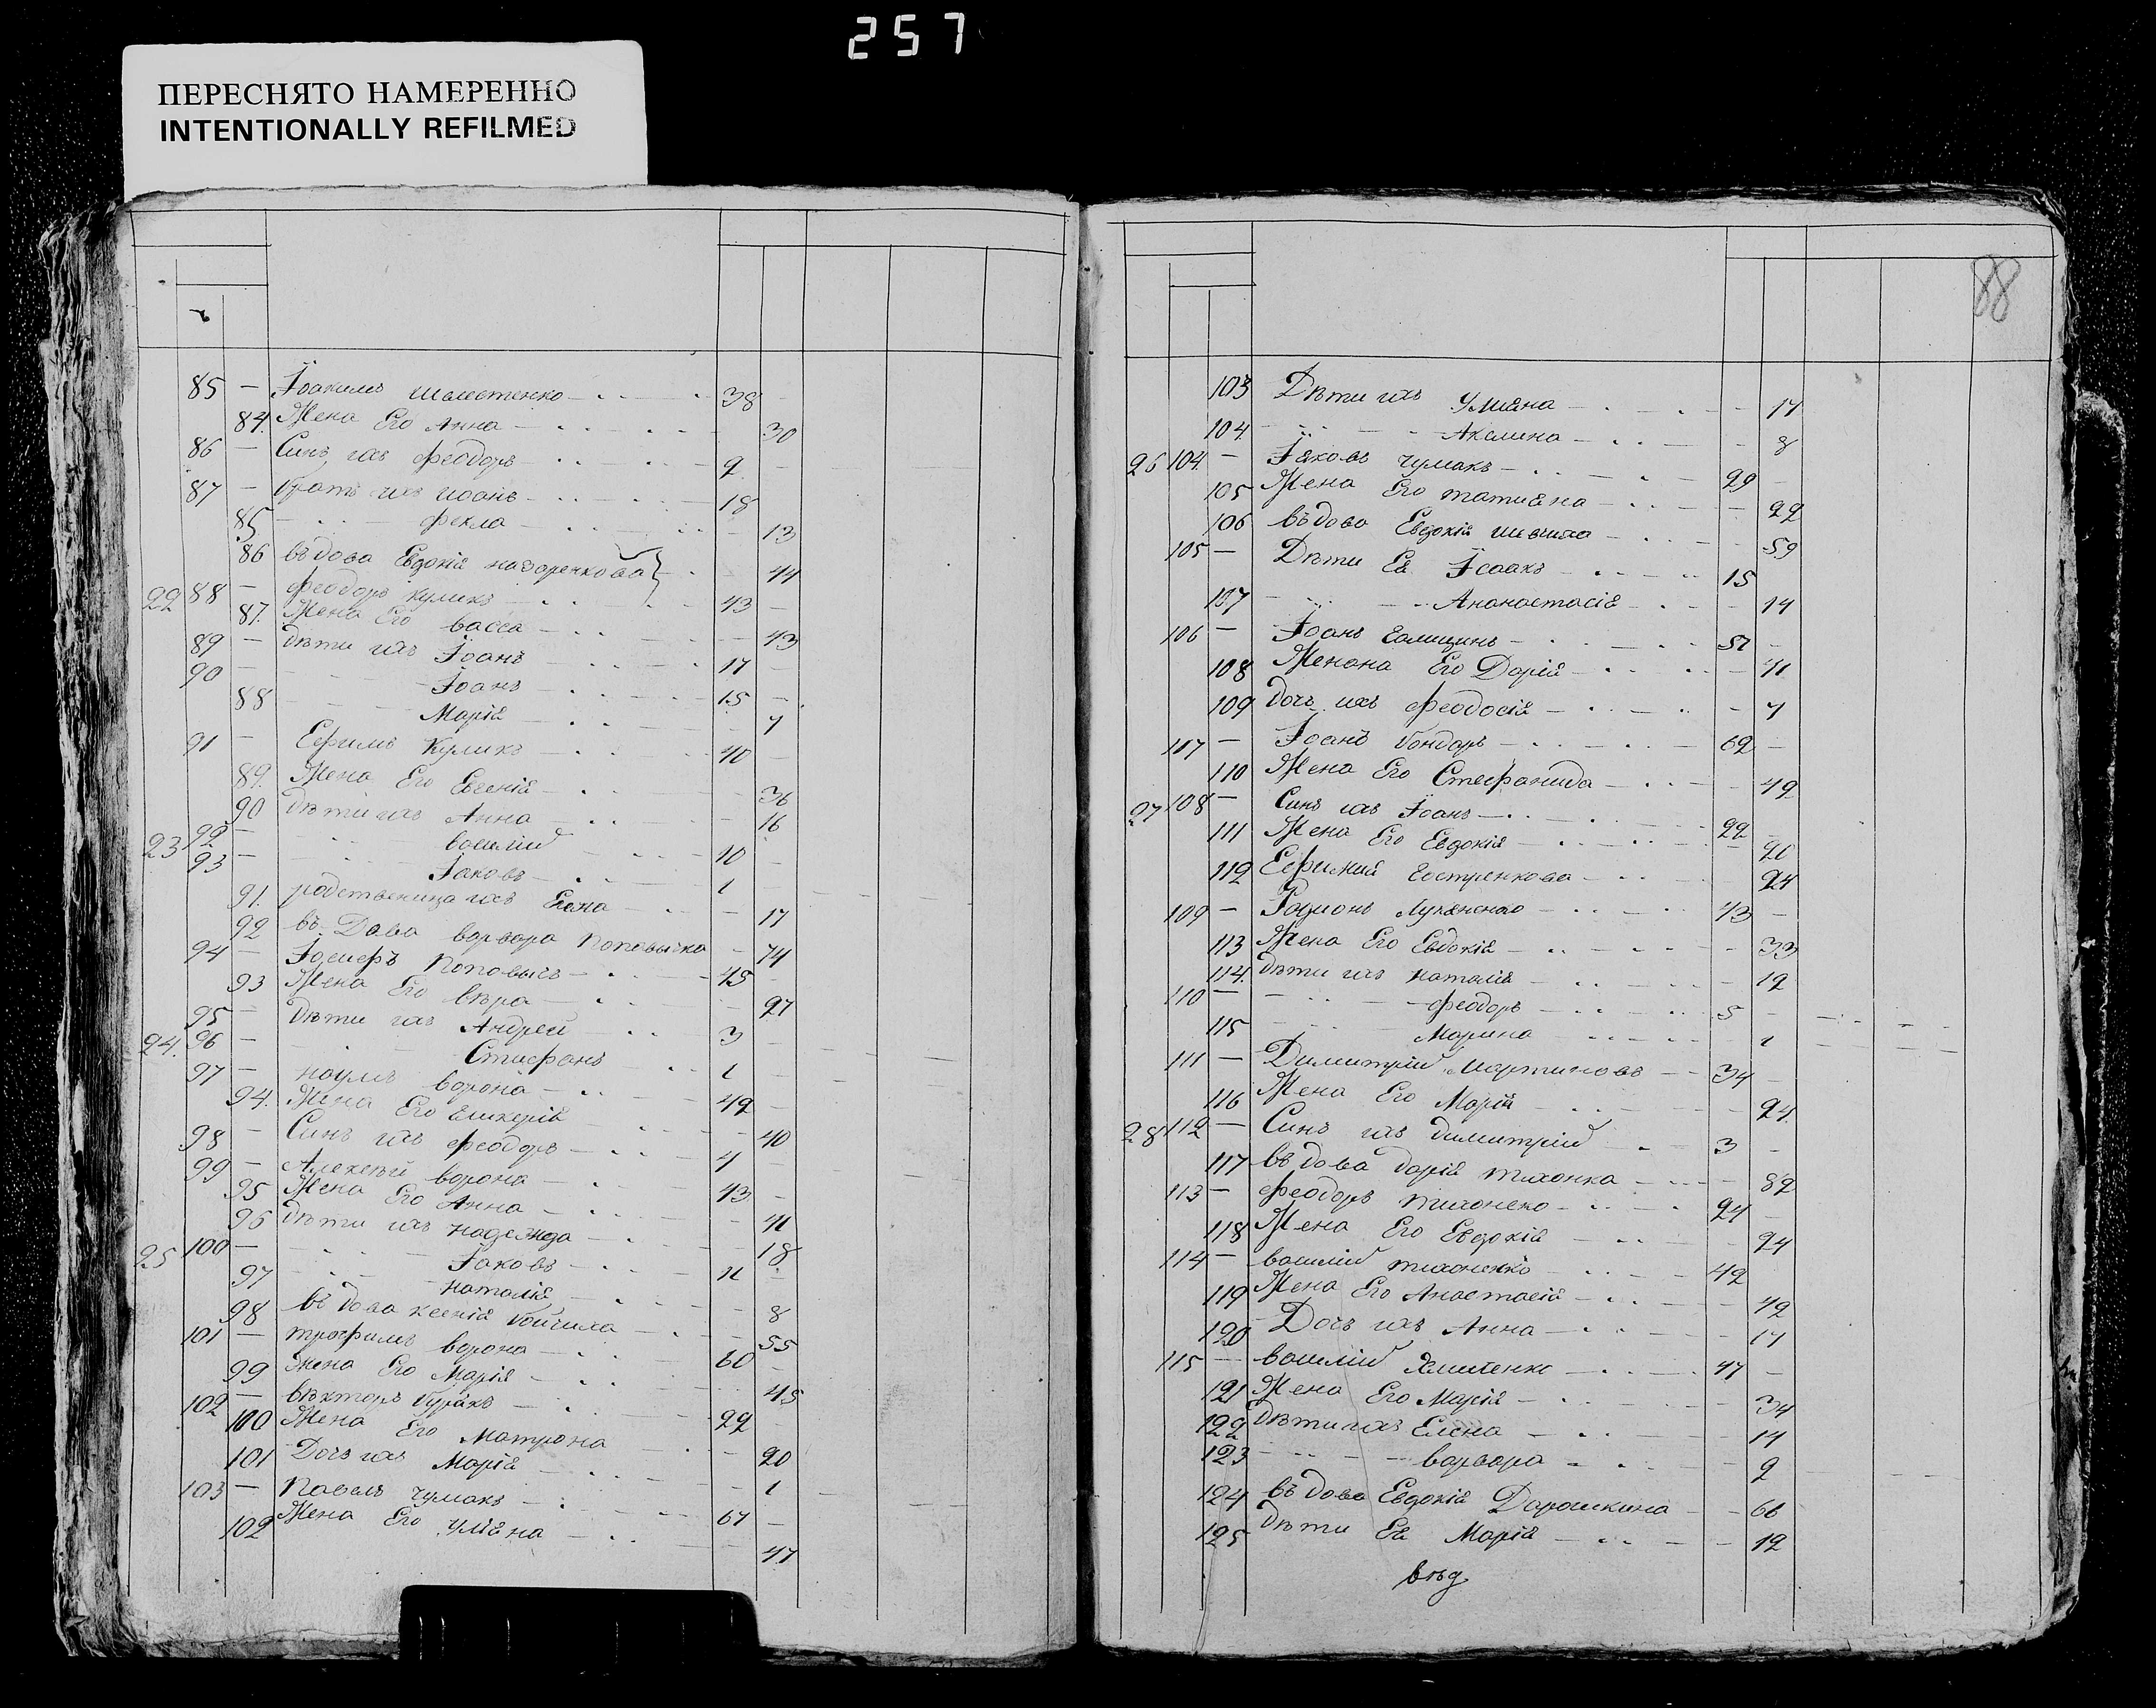 257
ПЕРЕСНЯТО НАМЕРЕННО
INTENTIONALLY REFILMED
85 — Їоакимъ Шелестенко 38 —
84. Жена Его Анна 30
86 — Синъ ихъ Феодоръ 9 —
87 — братъ ихъ иоанъ 18
85 Фекла 13
86 въдова Евдокія назаренкова 44
22 88 — Феодоръ куликъ 43 —
87. Жена Его васса 43
89 — дѣти ихъ Їоанъ 17 —
90 — Їоанъ 15 —
88 Марія 7
91 — Ефимъ Куликъ 40 —
89. Жена Его Евгенія 36
90 дѣти ихъ Анна 16
23 92 — василій 10 —
93 — Їаковъ 1
91. родственица ихъ Елена 17
92 въ Дова варвара поповычка 74
94 — Їосифъ Поповычъ 45 —
93 Жена Его вѣра 27
95 — Дѣти ихъ Андрей 3 —
24. 96 — Стефанъ 1
97 — наумъ ворона 42 —
94. Жена Его Гликерія 40
98 — Синъ ихъ Феодоръ 4
99 — Алексѣй ворона 43 —
95 Жена Его Анна 41
96 дѣти ихъ надежда 18
25 100 — Їаковъ 11
97 наталія 8
98 въдова ксенія 55
101 — трофимъ ворона 60 —
99 жена Его Марія 45
102 — вѣкторъ буракъ 22
100 Жена Его Матрона 20
101 Дочъ ихъ Марія 1
103 — Павелъ чумакъ 67 —
102 Жена Его Уліяна 47
88
103 Дѣти ихъ Уліяна 17
104 Акелина 8
26 104 — Їаковъ чумакъ 29 —
105 Жена Его татияна 22
106 въдова Евдокія 59
105 — Дѣти Ея Їсаакъ 15
107 Ананастасія 14
106 — Їоанъ Галицинъ 57 —
108 Женана Его Дарія 41
109 дочъ ихъ Феодосія 7
117 — Їоанъ бондарь 62 —
110 Жена Его Стефанида 42
27 108 — Синъ ихъ Їоанъ 22 —
111 Жена Его Евдокія 20
112 Ефимия 24
109 — Родионъ Лукяненко 43 —
113 Жена Его Евдокія 33
114. дѣти ихъ наталія 12
110 — Феодоръ 5 —
115 Марина 1
111 — Димитрій Мартиновъ 34 —
116 Жена Его Марія 24.
28 112 — Синъ ихъ димитрій 3 —
117 въдова дарія тихонка 82
113 — Феодоръ тихонеко 24 —
118 Жена Его Евдокія 24
114 — василій тихоненко 42
119 Жена Его Анастасія 42
120 Дочъ ихъ Анна 17
115 — василій 47 —
121 Жена Его Марія 34
122 дѣти ихъ Елена 14
123 варвара 9
124 въдова Евдокія Дарошкина 66
125 дѣти Ея Марія 12
вѣд